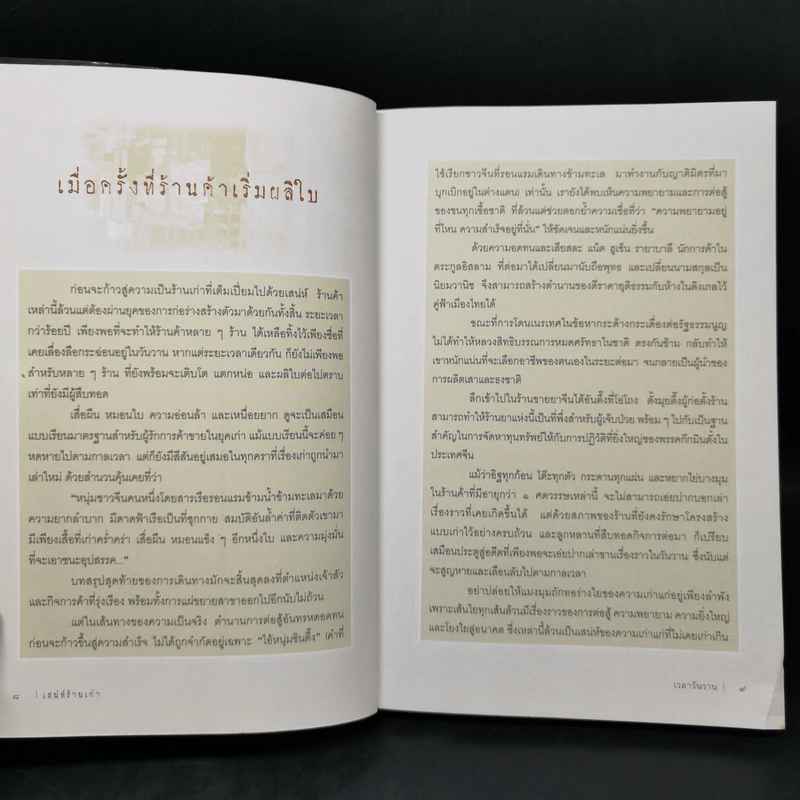 เมื่อครั้งที่ร้านค้าเริ่มผลิใบ
ก่อนจะก้าวสู่ความเป็นร้านเก่าที่เต็มเปี่ยมไปด้วยเสน่ห์ ร้านค้า
เหล่านี้ล้วนแต่ต้องผ่านยุคของการก่อร่างสร้างตัวมาด้วยกันทั้งสิ้น ระยะเวลา
กว่าร้อยปี เพียงพอที่จะทำให้ร้านค้าหลาย ๆ ร้าน ได้เหลือทิ้งไว้เพียงชื่อที่
เคยเลื่องลือกระฉ่อนอยู่ในวันวาน หากแต่ระยะเวลาเดียวกัน ก็ยังไม่เพียงพอ
สำหรับหลาย ๆ ร้าน ที่ยังพร้อมจะเติบโต แตกหน่อ และผลิใบต่อไปตราบ
เท่าที่ยังมีผู้สืบทอด
เสื่อผืน หมอนใบ ความอ่อนล้า และเหนื่อยยาก ดูจะเป็นเสมือน
แบบเรียนมาตรฐานสำหรับผู้รักการค้าขายในยุคเก่า แม้แบบเรียนนี้จะค่อย ๆ
หดหายไปตามกาลเวลา แต่ก็ยังมีสีสันอยู่เสมอในทุกคราที่เรื่องเก่าถูกนำมา
เล่าใหม่ ด้วยสำนวนคุ้นเคยที่ว่า
“หนุ่มชาวจีนคนหนึ่งโดยสารเรือรอนแรมข้ามน้ำข้ามทะเลมาด้วย
ความยากลำบาก มีดาดฟ้าเรือเป็นที่ซุกกาย สมบัติอันล้ำค่าที่ติดตัวเขามา
มีเพียงเสื้อที่เก่าคร่ำคร่า เสื่อผืน หมอนแข็ง ๆ อีกหนึ่งใบ และความมุ่งมั่น
ที่จะเอาชนะอุปสรรค...”
บทสรุปสุดท้ายของการเดินทางมักจะสิ้นสุดลงที่ตำแหน่งเจ้าสัว
และกิจการค้าที่รุ่งเรือง พร้อมทั้งการแผ่ขยายสาขาออกไปอีกนับไม่ถ้วน
แต่ในเส้นทางของความเป็นจริง ตำนานการต่อสู้อันทรหดอดทน
ก่อนจะก้าวขึ้นสู่ความสำเร็จ ไม่ได้ถูกจำกัดอยู่เฉพาะ “ไอ้หนุ่มซินตึ๊ง” (คำที่
๘ | เสน่ห์ร้านเก่า
ใช้เรียกชาวจีนที่รอนแรมเดินทางข้ามทะเล มาทำงานกับญาติมิตรที่มา
บุกเบิกอยู่ในต่างแดน) เท่านั้น เรายังได้พบเห็นความพยายามและการต่อสู้
ของชนทุกเชื้อชาติ ที่ล้วนแต่ช่วยตอกย้ำความเชื่อที่ว่า “ความพยายามอยู่
ที่ไหน ความสำเร็จอยู่ที่นั่น” ให้ชัดเจนและหนักแน่นยิ่งขึ้น
ด้วยความอดทนและเสียสละ แน็ต ฮูเซ็น รายาบาลี นักการค้าใน
ตระกูลอิสลาม ที่ต่อมาได้เปลี่ยนมานับถือพุทธ และเปลี่ยนนามสกุลเป็น
นิยมวานิช จึงสามารถสร้างตำนานของดีราคายุติธรรมกับห้างไนติงเกลไว้
คู่ฟ้าเมืองไทยได้
ขณะที่การโดนเนรเทศในข้อหากระด้างกระเดื่องต่อรัฐธรรมนูญ
ไม่ได้ทำให้หลวงสิทธิบรรณการหมดศรัทธาในชาติ ตรงกันข้าม กลับทำให้
เขาหนักแน่นที่จะเลือกอาชีพของตนเองในระยะต่อมา จนกลายเป็นผู้นำของ
การผลิตเสาและธงชาติ
ลึกเข้าไปในร้านขายยาจีนได้อันตึ๊งที่โอ่โถง ตั้งมุยตี๊งผู้ก่อตั้งร้าน
สามารถทำให้ร้านยาแห่งนี้เป็นที่พึ่งสำหรับผู้เจ็บป่วย พร้อม ๆ ไปกับเป็นฐาน
สำคัญในการจัดหาทุนทรัพย์ให้กับการปฏิวัติที่ยิ่งใหญ่ของพรรคก๊กมินตั๋งใน
ประเทศจีน
แม้ว่าอิฐทุกก้อน โต๊ะทุกตัว กระดานทุกแผ่น และหยากไย่บางมุม
ในร้านค้าที่มีอายุกว่า ๑ ศตวรรษเหล่านี้ จะไม่สามารถเอ่ยปากบอกเล่า
เรื่องราวที่เคยเกิดขึ้นได้ แต่ด้วยสภาพของร้านที่ยังคงรักษาโครงสร้าง
แบบเก่าไว้อย่างครบถ้วน และลูกหลานที่สืบทอดกิจการต่อมา ก็เปรียบ
เสมือนประตูสู่อดีตที่เพียงพอจะเอ่ยปากเล่าขานเรื่องราวในวันวาน ซึ่งนับแต่
จะสูญหายและเลือนลับไปตามกาลเวลา
อย่าปล่อยให้แมงมุมถักทอร่างใยของความเก่าแก่อยู่เพียงลำพัง
เพราะเส้นใยทุกเส้นล้วนมีเรื่องราวของการต่อสู้ ความพยายาม ความยิ่งใหญ่
และโยงใยสู่อนาคต ซึ่งเหล่านี้ล้วนเป็นเสน่ห์ของความเก่าแก่ที่ไม่เคยเก่าเกิน
เวลาวันวาน | ๙